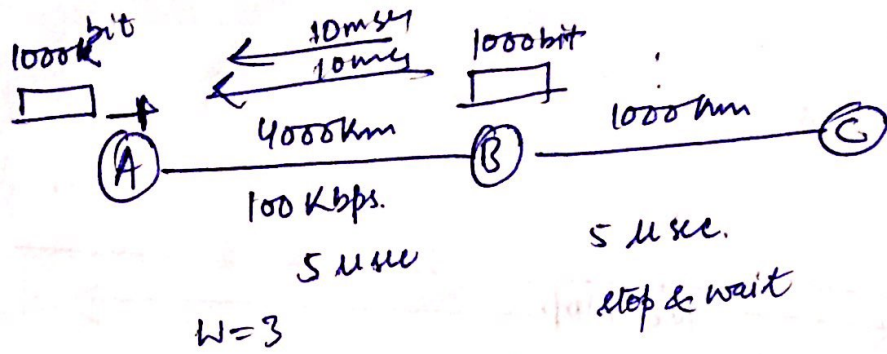 1000K bit
10msec
10msec
1000bit
4000Km
1000km
A
B
C
100 Kbps.
5 µsec
5 µsec.
W=3
stop & wait